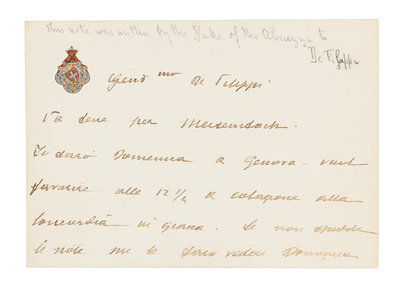 This note was written by the Duke of the Abruzzi to
De Filippi
Gent mo De Filippi
Va bene per
Io sarò Domenica a Genova - vuol
favorire alle 12 1/2 a colazione alla
Concordia in Se non
le note me le farà vedere Domenica